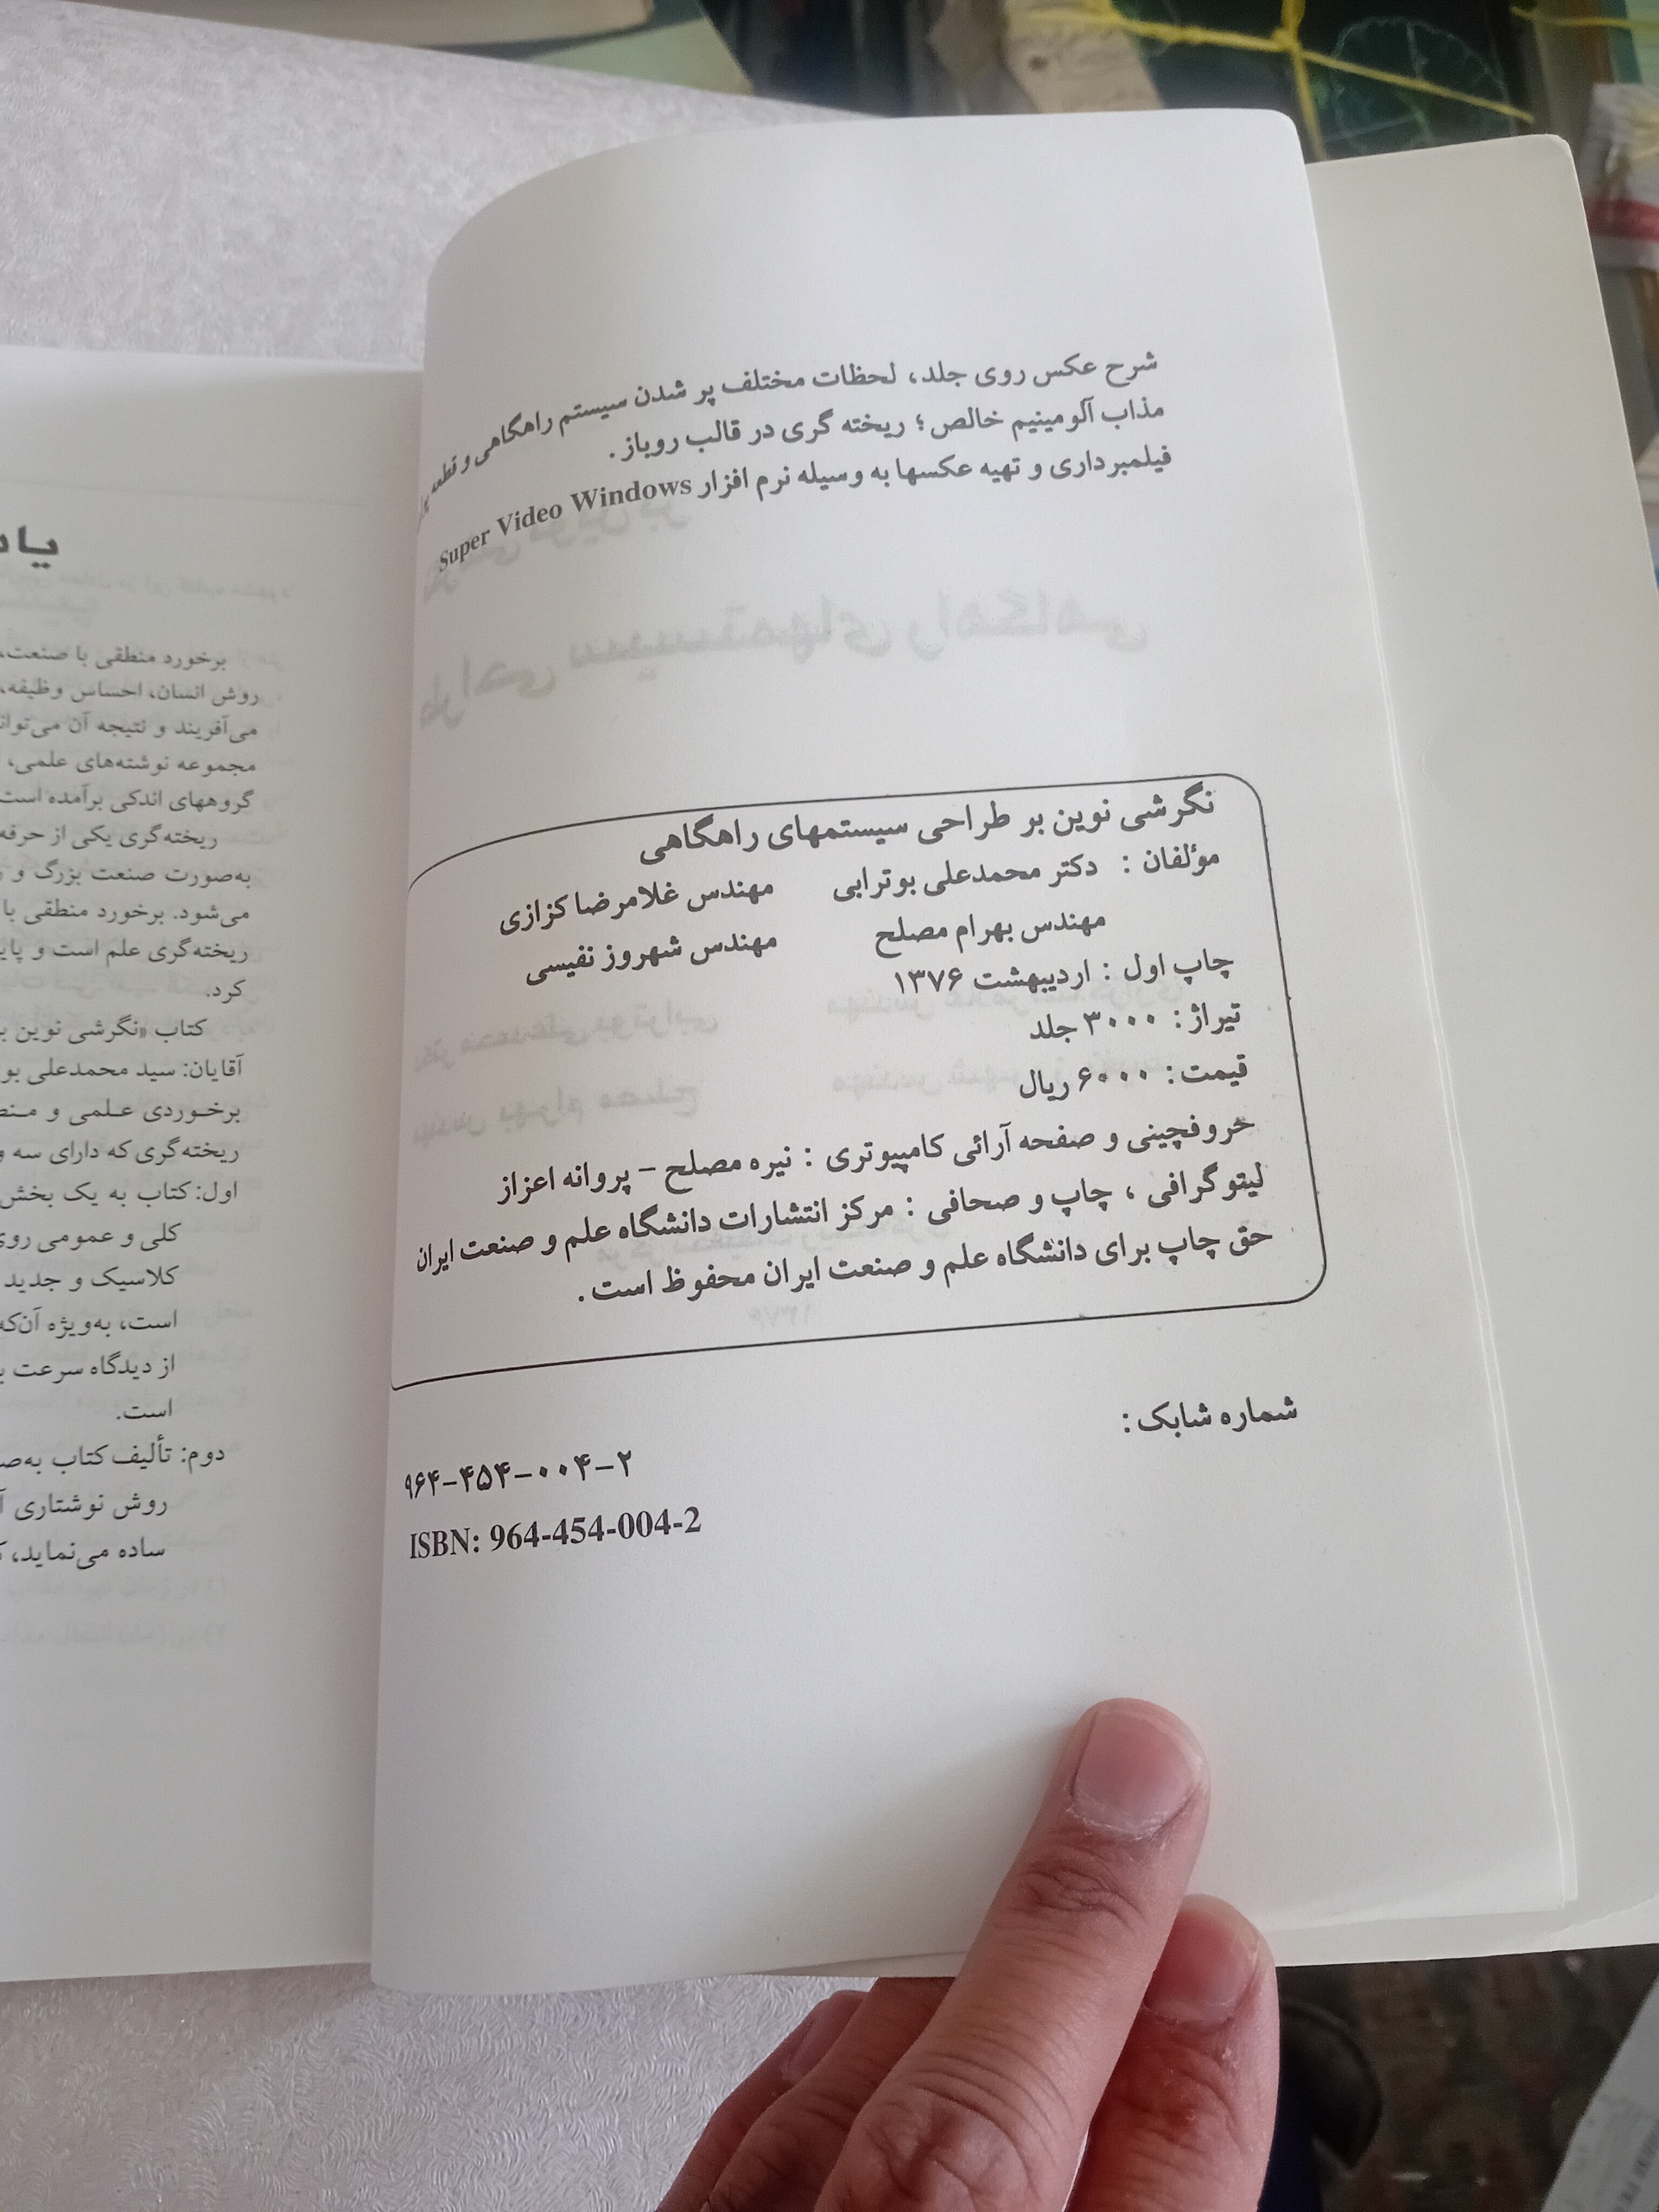 شرح عکس روی جلد، لحظات مختلف پر شدن سیستم راهگاهی و قطعه
مذاب آلومینیم خالص؛ ریخته گری در قالب روباز.
فیلمبرداری و تهیه عکسها به وسیله نرم افزار Super Video Windows
نگرشی نوین بر طراحی سیستمهای راهگاهی
مؤلفان : دکتر محمدعلی بوترابی مهندس غلامرضا کزازی
مهندس بهرام مصلح مهندس شهروز نفیسی
چاپ اول : اردیبهشت ۱۳۷۶
تیراژ : ۳۰۰۰ جلد
قیمت : ۶۰۰۰ ریال
حروفچینی و صفحه آرائی کامپیوتری : نیره مصلح – پروانه اعزاز
لیتوگرافی ، چاپ و صحافی : مرکز انتشارات دانشگاه علم و صنعت ایران
حق چاپ برای دانشگاه علم و صنعت ایران محفوظ است .
شماره شابک :
۹۶۴–۴۵۴–۰۰۴–۲
ISBN: 964-454-004-2
برخورد منطقی با صنعت،
روش انسان، احساس وظیفه،
می‌آفریند و نتیجه آن
مجموعه نوشته‌های علمی،
گروههای اندکی برآمده است
ریخته‌گری یکی از حرفه
به‌صورت صنعت بزرگ و
می‌شود. برخورد منطقی با
ریخته‌گری علم است و
کرد.
کتاب «نگرشی نوین
آقایان: سید محمدعلی
برخوردی علمی و
ریخته‌گری که دارای سه
اول: کتاب به یک بخش
کلی و عمومی
کلاسیک و جدید
است، به‌ویژه آن‌که
از دیدگاه سرعت
است.
دوم: تألیف کتاب
روش نوشتاری
ساده می‌نماید،